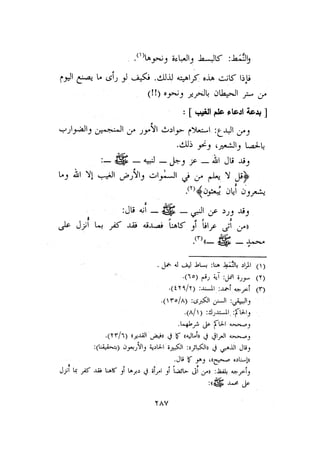 والنَّمَط: كالبسط والعباءة ونحوها(١).
فإذا كانت هذه كراهيته لذلك. فكيف لو رأى ما يصنع اليوم
من ستر الحيطان بالحرير ونحوه (!!)
[ بدعة ادعاء علم الغيب ] :
ومن البدع: استعلام حوادث الأمور من المنجمين والضوارب
بالحصا والشعير، ونحو ذلك.
وقد قال الله — عز وجل — لنبيه — ﷺ —:
﴿قل لا يعلم من في السموات والأرض الغيب إلا الله وما
يشعرون أيان يُبعثون﴾(٢).
وقد ورد عن النبي — ﷺ — أنه قال:
«من أتى عرافاً أو كاهناً فصدقه فقد كفر بما أنزل على
محمد — ﷺ —»(٣).
(١) المراد بالنَّمَط هنا: بساط ليف له خمل.
(٢) سورة النمل: آية رقم (٦٥).
(٣) أخرجه أحمد: المسند: (٤٢٩/٢).
والبيهقي: السنن الكبرى: (١٣٥/٨)
والحاكم: المستدرك: (٨/١).
وصححه الحاكم على شرطهما.
وصححه العراقي في «أماليه» كما في «فيض القدير» (٢٣/٦).
وقال الذهبي في «الكبائر»: الكبيرة الحادية والأربعون (بتحقيقنا):
«إسناده صحيح»، وهو كما قال.
وأخرجه بلفظ: «من أتى حائضاً أو امرأة في دبرها أو كاهنا فقد كفر بما أنزل
على محمد ﷺ»:
٢٨٧